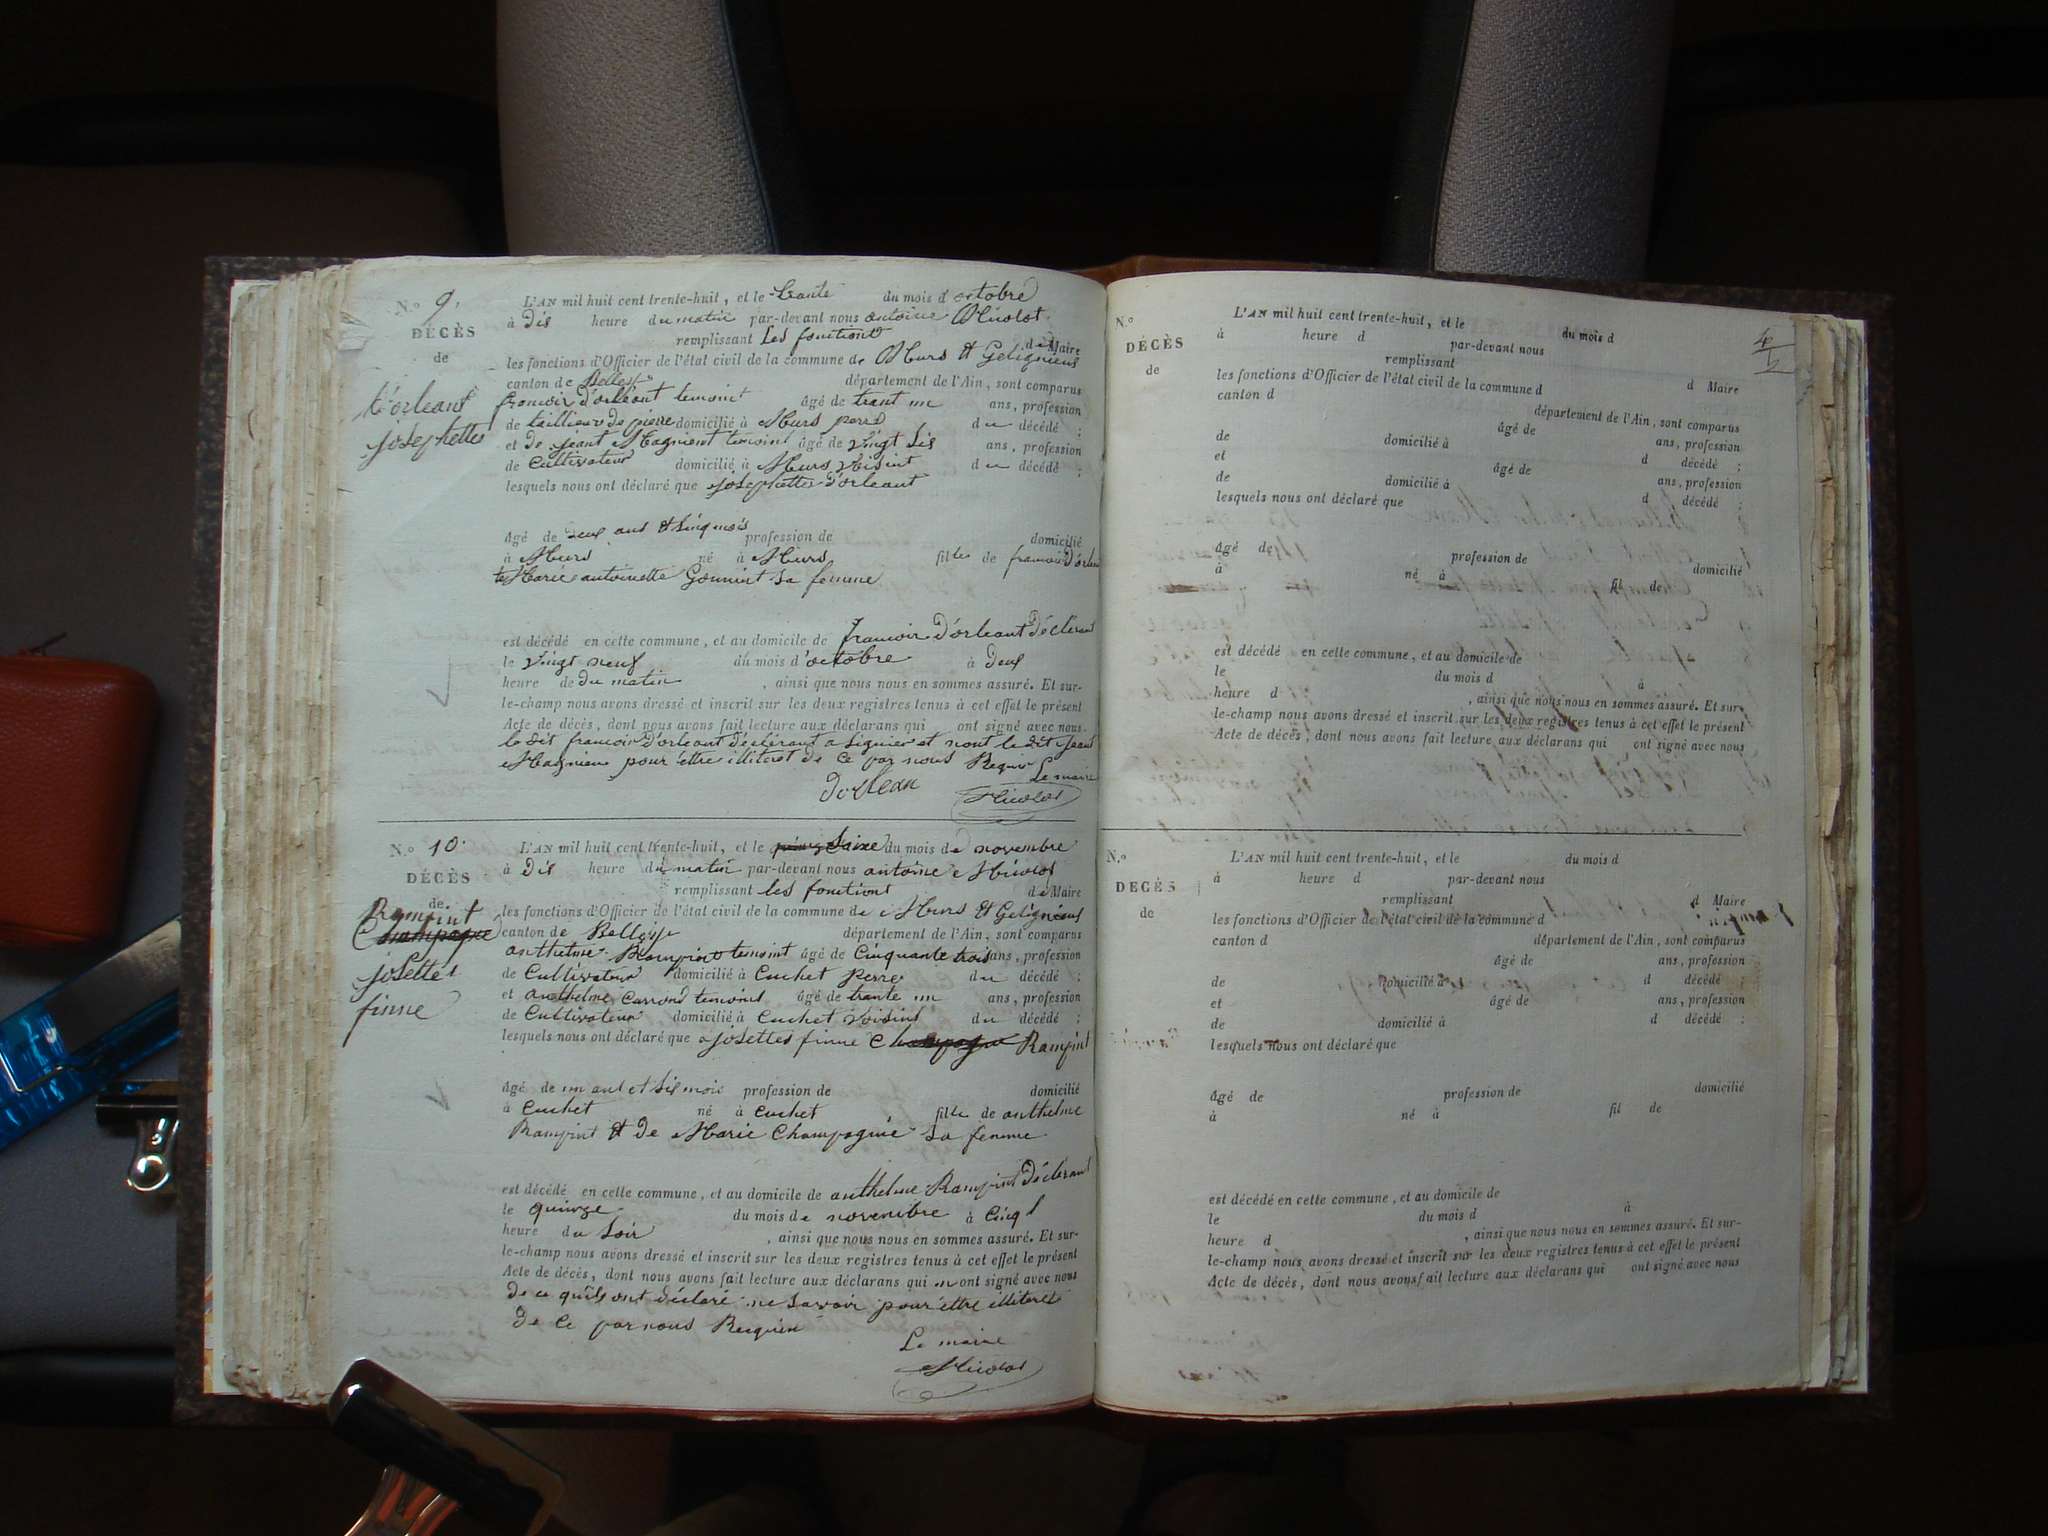 N.o 9.
DÉCÈS
de
d'orleant
josephette
L'AN mil huit cent trente-huit, et le trante du mois d'octobre
à dis heure du matin par-devant nous antoine Nicolot
remplissant Les fonctiont de Maire
les fonctions d'Officier de l'état civil de la commune de Murs et Gelignieus
canton de Belley département de l'Ain, sont comparus
francoir d'orleant temoint âgé de trant un ans, profession
de taillieur de pierre domicilié à Murs perre du décédé ;
et de jeant Magnient temoint âgé de vingt sis ans, profession
de cultivateur domicilié à Murs voisint du décédé ;
lesquels nous ont déclaré que josephette d'orleant
âgé de deus ans et sinq mois profession de domicilié
à Murs né à Murs fille de francoir d'orleant
et Marie antoinette Gonnint sa femme
est décédé en cette commune, et au domicile de francoir d'orleant déclerant
le vingt neuf du mois d'octobre à deus
heure de du matin , ainsi que nous nous en sommes assuré. Et sur-
le-champ nous avons dressé et inscrit sur les deux registres tenus à cet effet le présent
Acte de décès, dont nous avons fait lecture aux déclarans qui ont signé avec nous.
le dit francoir d'orleant déclérant a signier et nont le dit jeant
Magnient pour ettre illiteret de ce par nous Requis
Le maire
Dorlean Nicolot
N.o 10.
DÉCÈS
de
Rampint
Champagne
josette
finne
L'AN mil huit cent trente-huit, et le seixe du mois de novembre
à dis heure du matin par-devant nous antoine Nicolot
remplissant les fonctiont de Maire
les fonctions d'Officier de l'état civil de la commune de Murs et Gelignieus
canton de Belley département de l'Ain, sont comparus
anthelme Rampint temoint âgé de cinquante trois ans, profession
de cultivateur domicilié à Cuchet perre du décédé ;
et anthelme Carrond temoint âgé de trante un ans, profession
de cultivateur domicilié à Cuchet voisint du décédé ;
lesquels nous ont déclaré que josette finne Champagne Rampint
âgé de un ant et sis mois profession de domicilié
à Cuchet né à Cuchet fille de anthelme
Rampint et de Marie Champagnie sa femme
est décédé en cette commune, et au domicile de anthelme Rampint déclerant
le quinze du mois de novembre à cinq
heure du soir , ainsi que nous nous en sommes assuré. Et sur-
le-champ nous avons dressé et inscrit sur les deux registres tenus à cet effet le présent
Acte de décès, dont nous avons fait lecture aux déclarans qui nont signé avec nous
de ce quils ont déclaré ne savoir pour ettre illiteret
de ce par nous Requier
Le maire
Nicolot
N.o
DÉCÈS
de
L'AN mil huit cent trente-huit, et le du mois d
à heure d par-devant nous
remplissant d Maire
les fonctions d'Officier de l'état civil de la commune d
canton d département de l'Ain, sont comparus
âgé de ans, profession
de domicilié à d décédé ;
et âgé de ans, profession
de domicilié à d décédé ;
lesquels nous ont déclaré que
âgé de profession de domicilié
à né à fil de
est décédé en cette commune, et au domicile de
le du mois d à
heure d , ainsi que nous nous en sommes assuré. Et sur-
le-champ nous avons dressé et inscrit sur les deux registres tenus à cet effet le présent
Acte de décès, dont nous avons fait lecture aux déclarans qui ont signé avec nous
N.o
DÉCÈS
de
L'AN mil huit cent trente-huit, et le du mois d
à heure d par-devant nous
remplissant d Maire
les fonctions d'Officier de l'état civil de la commune d
canton d département de l'Ain, sont comparus
âgé de ans, profession
de domicilié à d décédé ;
et âgé de ans, profession
de domicilié à d décédé ;
lesquels nous ont déclaré que
âgé de profession de domicilié
à né à fil de
est décédé en cette commune, et au domicile de
le du mois d à
heure d , ainsi que nous nous en sommes assuré. Et sur-
le-champ nous avons dressé et inscrit sur les deux registres tenus à cet effet le présent
Acte de décès, dont nous avons fait lecture aux déclarans qui ont signé avec nous